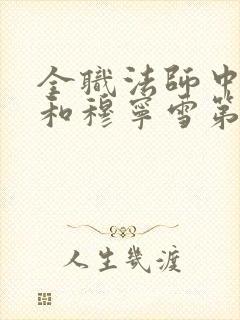 全職法師中
和穆寧雪第
人生幾渡